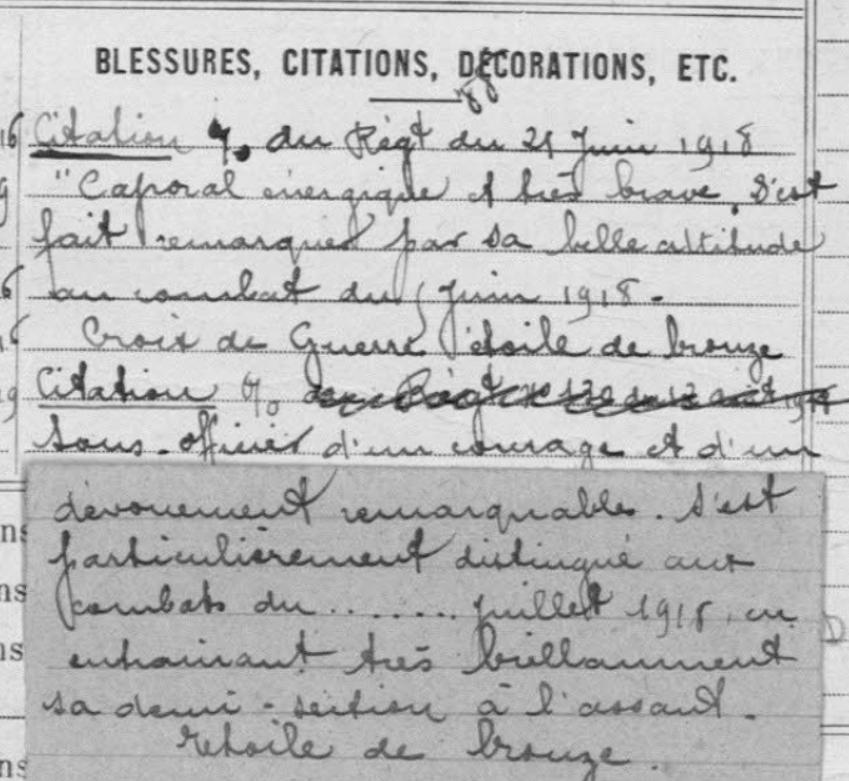 BLESSURES, CITATIONS, DÉCORATIONS, ETC.
Citation du Régt du 21 Juin 1918
"Caporal énergique et très brave. S'est
fait remarquer par sa belle attitude
au combat du Juin 1918 -
Croix de Guerre étoile de bronze
Citation %
Sous-officier d'un courage et d'un
dévouement remarquables. S'est
particulièrement distingué aux
combats du ........ juillet 1918, en
entrainant très brillamment
sa demi-section à l'assaut.
étoile de bronze.